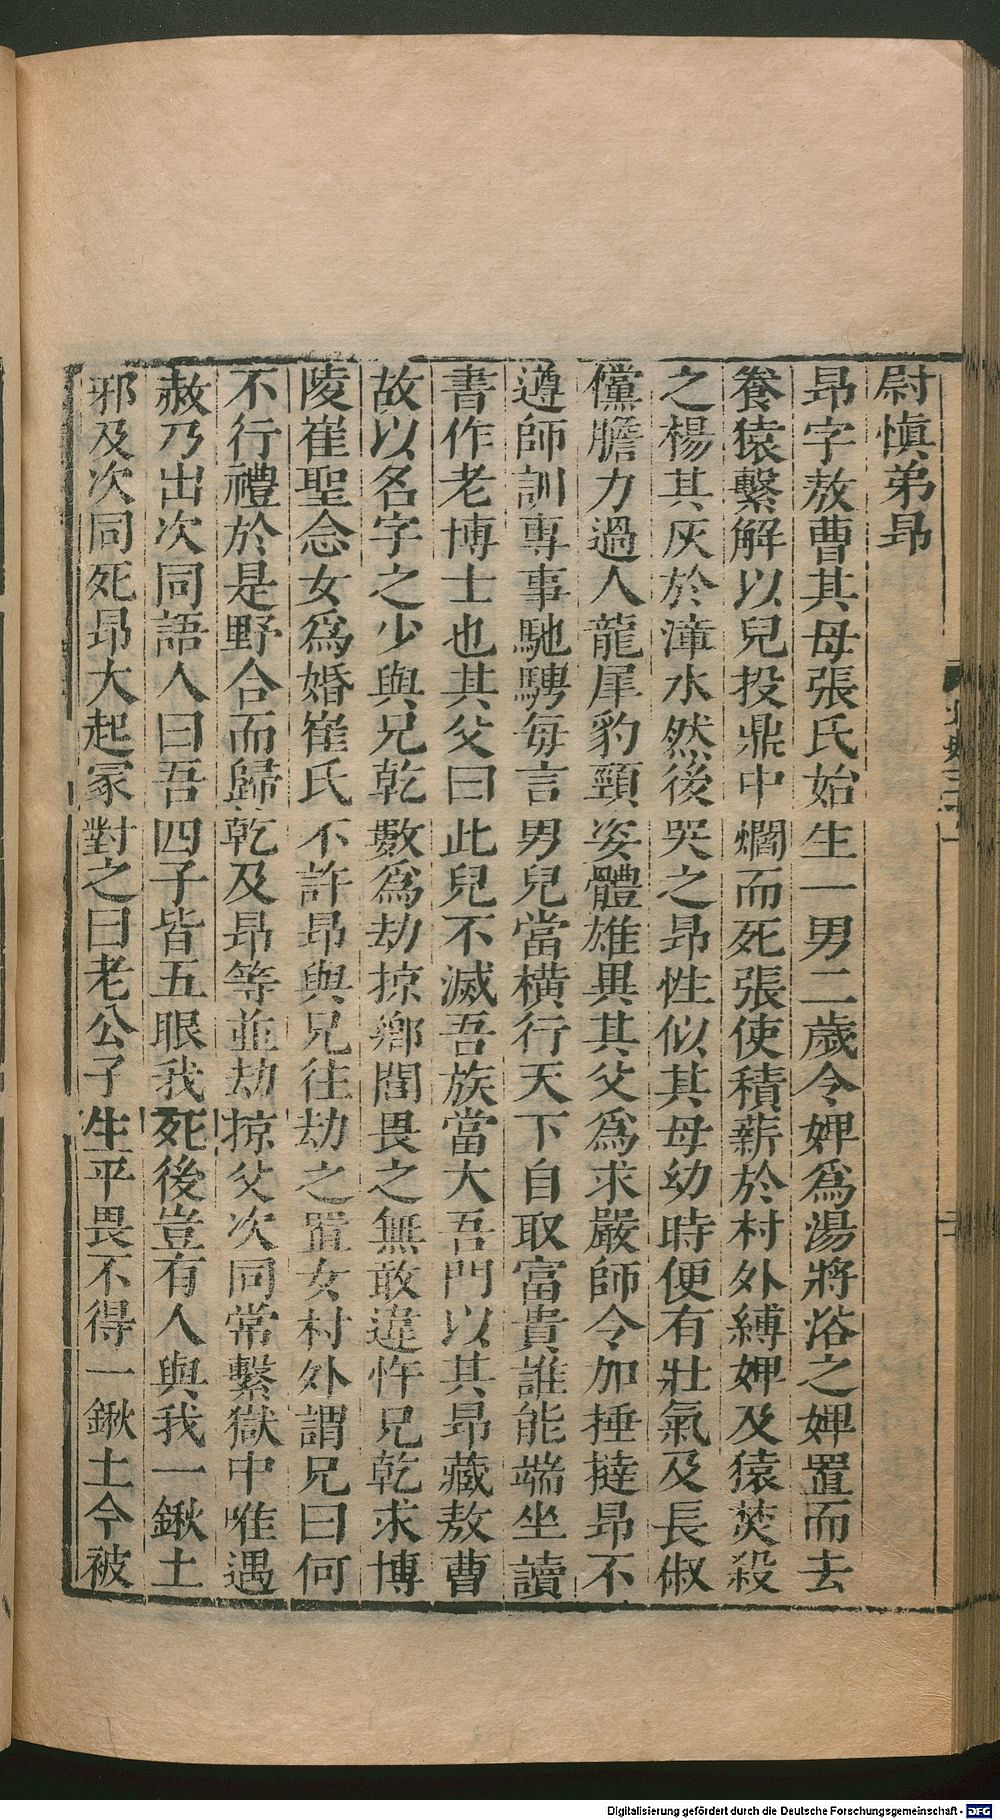 尉愼弟昂
昂字敖曹其母張氏始生一男二歲令婢爲湯將浴之婢置而去
養猿繫解以兒投鼎中爛而死張使積薪於村外縛婢及猿焚殺
之楊其灰於漳水然後哭之昂性似其母幼時便有壯氣及長俶
儻膽力過人龍犀豹頸姿體雄異其父爲求嚴師令加捶撻昂不
遵師訓專事馳騁每言男兒當橫行天下自取富貴誰能端坐讀
書作老博士也其父曰此兒不滅吾族當大吾門以其昂藏敖曹
故以名字之少與兄乾數爲劫掠鄉閭畏之無敢違忤兄乾求博
陵崔聖念女爲婚崔氏不許昂與兄往劫之置女村外謂兄曰何
不行禮於是野合而歸乾及昂等並劫掠父次同常繫獄中唯遇
赦乃出次同語人曰吾四子皆五眼我死後豈有人與我一鍬土
邪及次同死昂大起冢對之曰老公子生平畏不得一鍬土今被
Digitalisierung gefördert durch die Deutsche Forschungsgemeinschaft - DFG